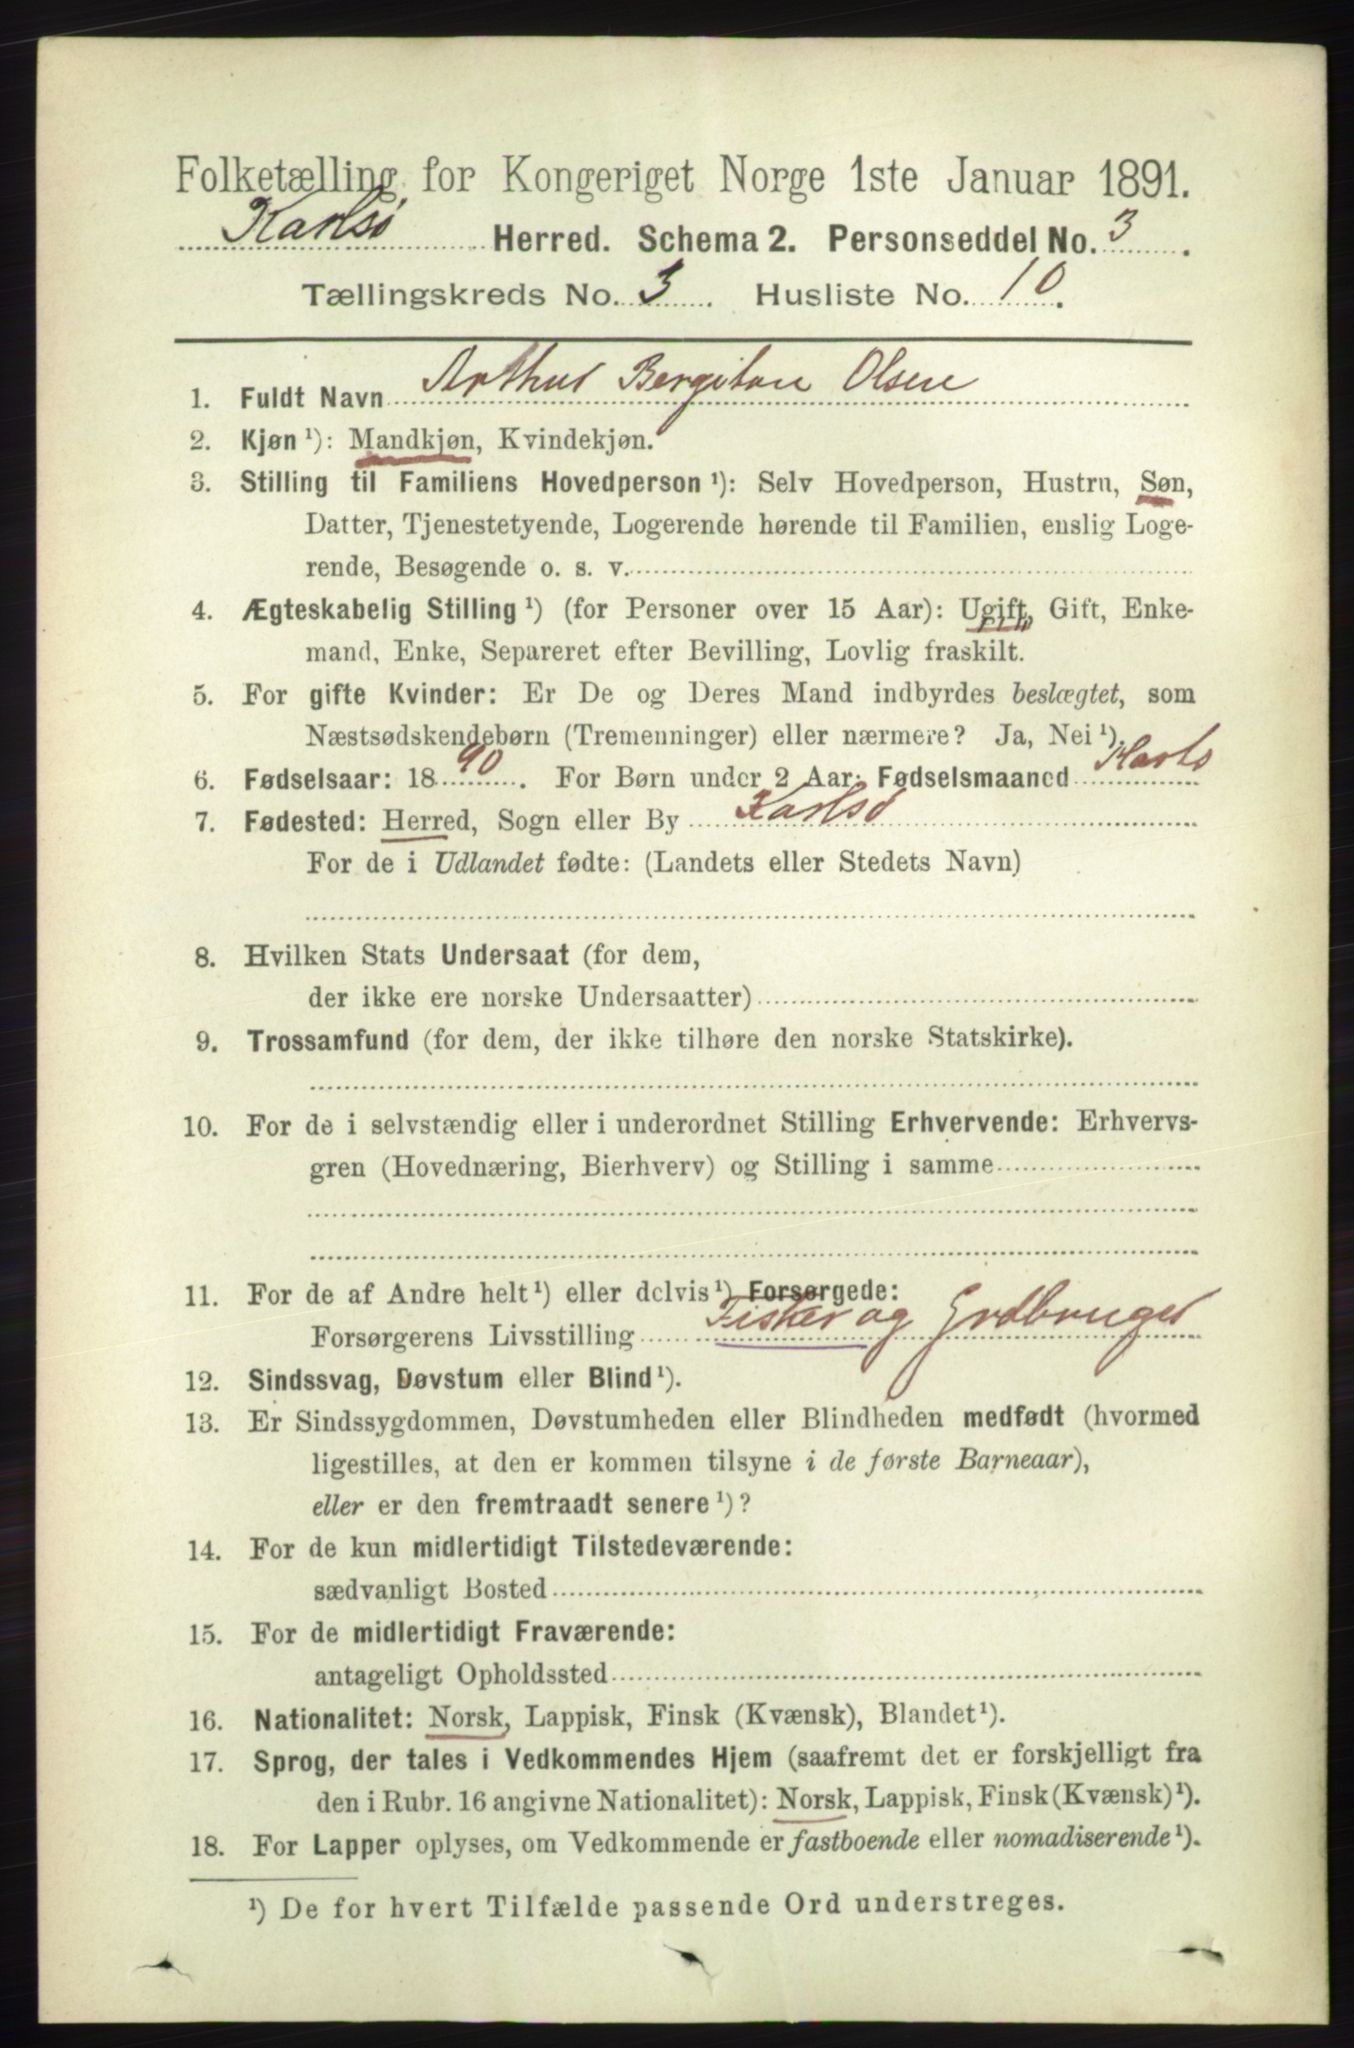 Folketælling for Kongeriget Norge 1ste Januar 1891.
Karlsø Herred. Schema 2. Personseddel No. 3.
Tællingskreds No. 3. Husliste No. 10.
1. Fuldt Navn Arthur Bergiton Olsen
2. Kjøn ¹): Mandkjøn, Kvindekjøn.
3. Stilling til Familiens Hovedperson ¹): Selv Hovedperson, Hustru, Søn,
Datter, Tjenestetyende, Logerende hørende til Familien, enslig Loge-
rende, Besøgende o. s. v.
4. Ægteskabelig Stilling ¹) (for Personer over 15 Aar): Ugift, Gift, Enke-
mand, Enke, Separeret efter Bevilling, Lovlig fraskilt.
5. For gifte Kvinder: Er De og Deres Mand indbyrdes beslægtet, som
Næstsødskendebørn (Tremenninger) eller nærmere? Ja, Nei ¹).
6. Fødselsaar: 1890. For Børn under 2 Aar: Fødselsmaaned Marts
7. Fødested: Herred, Sogn eller By Karlsø
For de i Udlandet fødte: (Landets eller Stedets Navn)
8. Hvilken Stats Undersaat (for dem,
der ikke ere norske Undersaatter)
9. Trossamfund (for dem, der ikke tilhøre den norske Statskirke).
10. For de i selvstændig eller i underordnet Stilling Erhvervende: Erhvervs-
gren (Hovednæring, Bierhverv) og Stilling i samme
11. For de af Andre helt ¹) eller delvis ¹) Forsørgede:
Forsørgerens Livsstilling Fisker og Grdbruger
12. Sindssvag, Døvstum eller Blind ¹).
13. Er Sindssygdommen, Døvstumheden eller Blindheden medfødt (hvormed
ligestilles, at den er kommen tilsyne i de første Barneaar),
eller er den fremtraadt senere ¹)?
14. For de kun midlertidigt Tilstedeværende:
sædvanligt Bosted
15. For de midlertidigt Fraværende:
antageligt Opholdssted
16. Nationalitet: Norsk, Lappisk, Finsk (Kvænsk), Blandet ¹).
17. Sprog, der tales i Vedkommendes Hjem (saafremt det er forskjelligt fra
den i Rubr. 16 angivne Nationalitet): Norsk, Lappisk, Finsk (Kvænsk) ¹).
18. For Lapper oplyses, om Vedkommende er fastboende eller nomadiserende ¹).
¹) De for hvert Tilfælde passende Ord understreges.